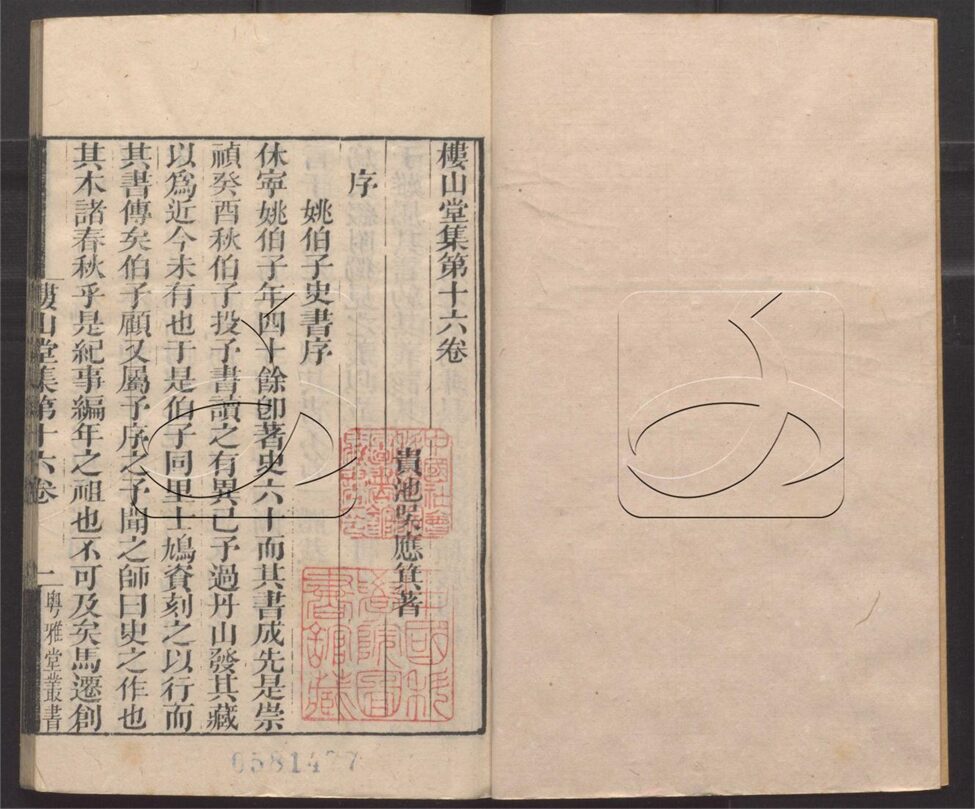 樓山堂集第十六卷
貴池吳應箕著
序
姚伯子史書序
休寧姚伯子年四十餘卽著史六十而其書成先是崇
禎癸酉秋伯子投予書讀之有異已予過丹山發其藏
以爲近今未有也于是伯子同里士鳩資刻之以行而
其書傳矣伯子顧又屬予序之予聞之師曰史之作也
其本諸春秋乎是紀事編年之祖也不可及矣馬遷創
樓山堂集第十六卷
一
粤雅堂叢書
0581477